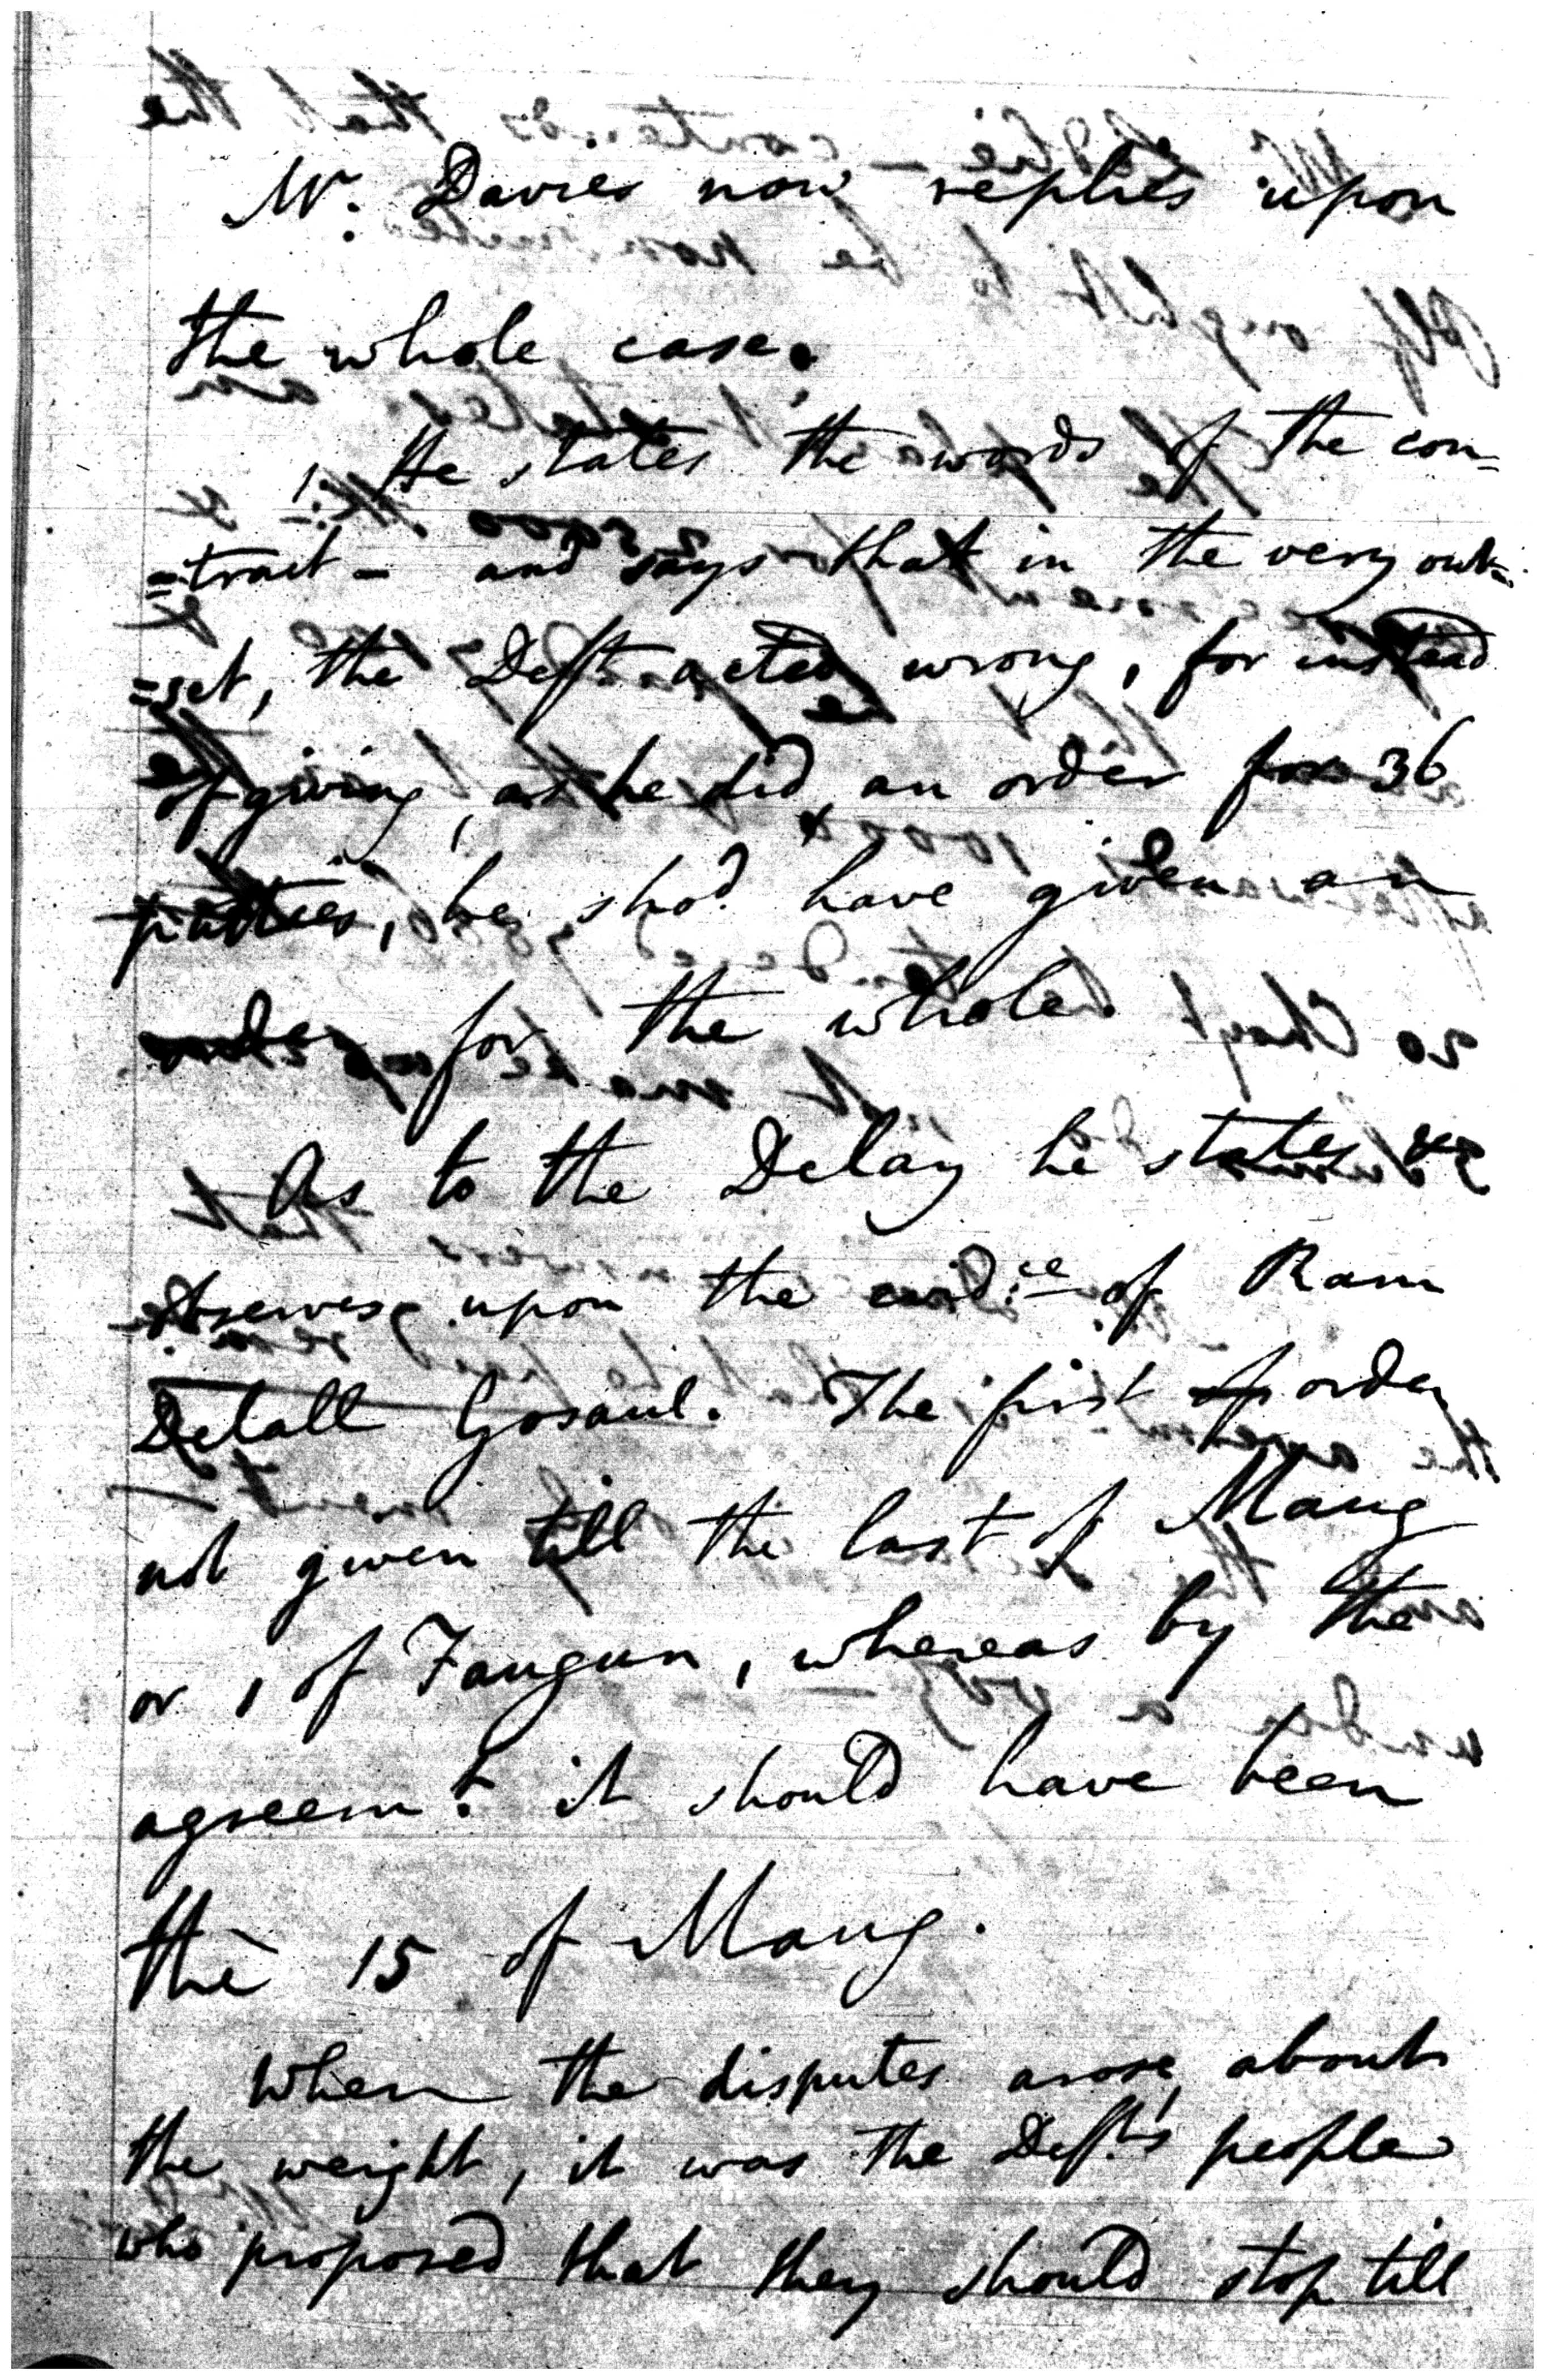 Mr. Davies now replies upon
the whole case.
1. He states the words of the con=
=tract - and says that in the very out=
=set, the Deft. acted wrong, for instead
of giving, as he did, an order for 36
he shod. have given an
order for the whole.
As to the Delay he states &
observes upon the evid:ce of Ram
Delall Gosaul. The first order
not given till the last of Maug
or 1 of Faugun, whereas by the
agreemt. it should have been
the 15 of Maug.
When the disputes arose, about
the weight, it was the Deft's people
who proposed that they should stop till